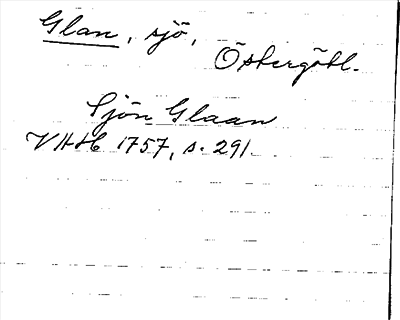 Glan, sjö,
Östergötl.
Sjön Glaan
VHAH 1757, s. 291.